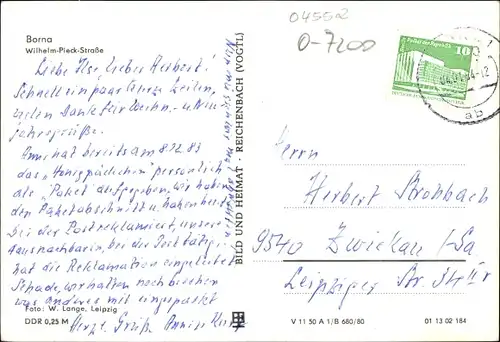 04552
0-7200
Borna
Wilhelm-Pieck-Straße
Liebe Ilse, lieber Herbert!
Schnell ein paar kurze Zeilen,
vielen Dank für Weihn.- u. Neu-
jahrsgrüße.
hat bereits am 8.12.83
das "Honigpäckchen" persönlich
als "Paket" aufgegeben, wir haben
den Paketabschnitt u. haben heute
bei der Post reklamiert, unsere
Hausnachbarin, bei der Post tätig,
hat die Reklamation eingeleitet.
Schade, wir hatten noch bisschen
was anderes mit eingepackt
Herzl. Grüße
Foto: W. Lange, Leipzig
DDR 0,25 M
BILD UND HEIMAT · REICHENBACH (VOGTL)
V 11 50 A 1/B 680/80
01 13 02 184
10
ab
Herrn
Herbert Strohbach
9540 Zwickau/Sa
Leipziger Str.